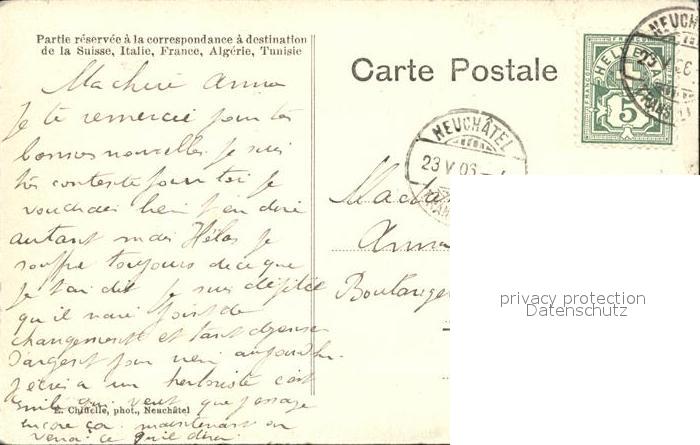 Partie réservée à la correspondance à destination
de la Suisse, Italie, France, Algérie, Tunisie
Carte Postale
HELVETIA
FRANCO
5
NEUCHÂTEL
23 V 06
Ma chère Anna
Je te remercie pour tes
bonnes nouvelles je suis
très contente pour toi je
voudrais bien t'en dire
autant mais Hélas je
souffre toujours de ce que
je t'ai dit je suis dépitée
qu'il n'aie point de
changement et tant dépensé
d'argent pour rien aujourdhu
j'écris a un herboriste c'est
Emile qui veut que j'essaye
encore ça maintenant on
verra ce qu'il dira
Anna
Boulanger
E. Chiffelle, phot., Neuchâtel
privacy protection
Datenschutz